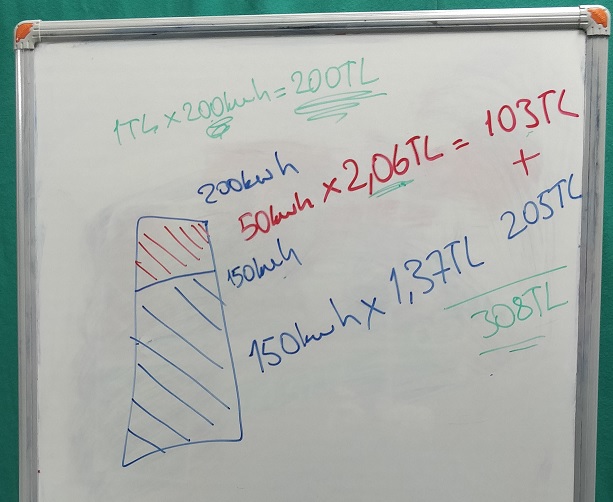 1TL×200kwh=200TL
200kwh
50kwh×2,06TL=103TL
+
150kwh
150kwh×1,37TL 205TL
308TL